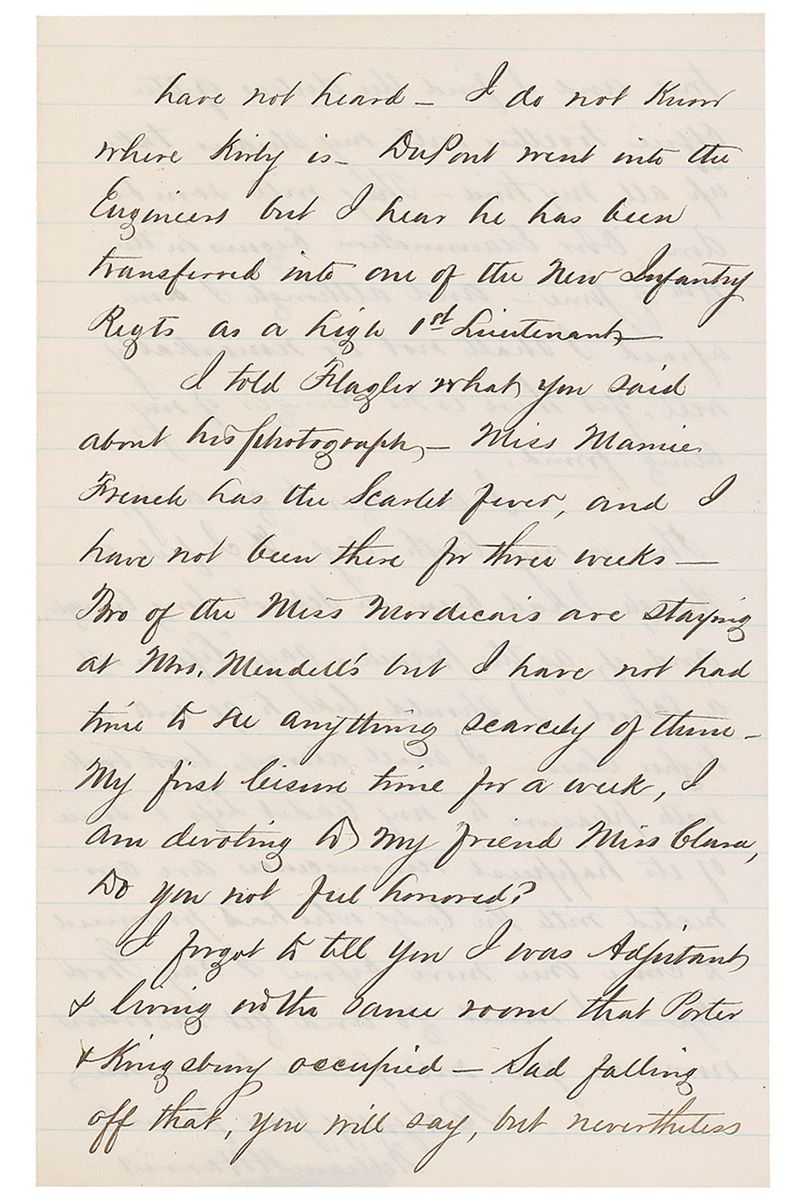 have not heard – I do not Know
where Kirby is – DuPont went into the
Engineers but I hear he has been
transferred into one of the New Infantry
Regts as a high 1st Lieutenant –
I told Flagler what you said
about his photograph, – Miss Mamie
French has the Scarlet fever, and I
have not been there for three weeks –
Two of the Miss Mordecais are staying
at Mrs. Mendell's but I have not had
time to see anything scarcely of them –
My first leisure time for a week, I
am devoting to my friend Miss Clara,
Do you not feel honored?
I forgot to tell you I was Adjutant
& living in the same room that Porter
& Kingsbury occupied – Sad falling
off that, you will say, but nevertheless